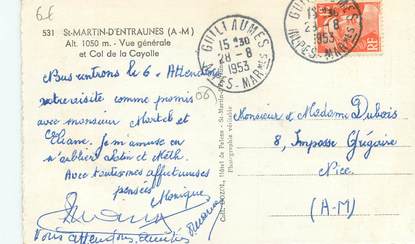 6€
531 St-MARTIN-D'ENTRAUNES (A-M)
Alt. 1050 m. - Vue générale
et Col de la Cayolle
GUILLAUMES
15 H 30
28-8
1953
ALPES-MAR^MES
GUILLAUMES
15 H 30
28-8
1953
ALPES-MAR^MES
RF
06
Nous rentrons le 6. Attendons
votre visite comme promis
avec monsieur Martel et
Eliane. Je m'amuse en
n'oubliant Latin et Math.
Avec toutes mes affectueuses
pensées
Monique
Vous attendons, amitiés
Monsieur et Madame Dubois
8, Impasse Grégoire
Nice
(A-M)
Photographie véritable